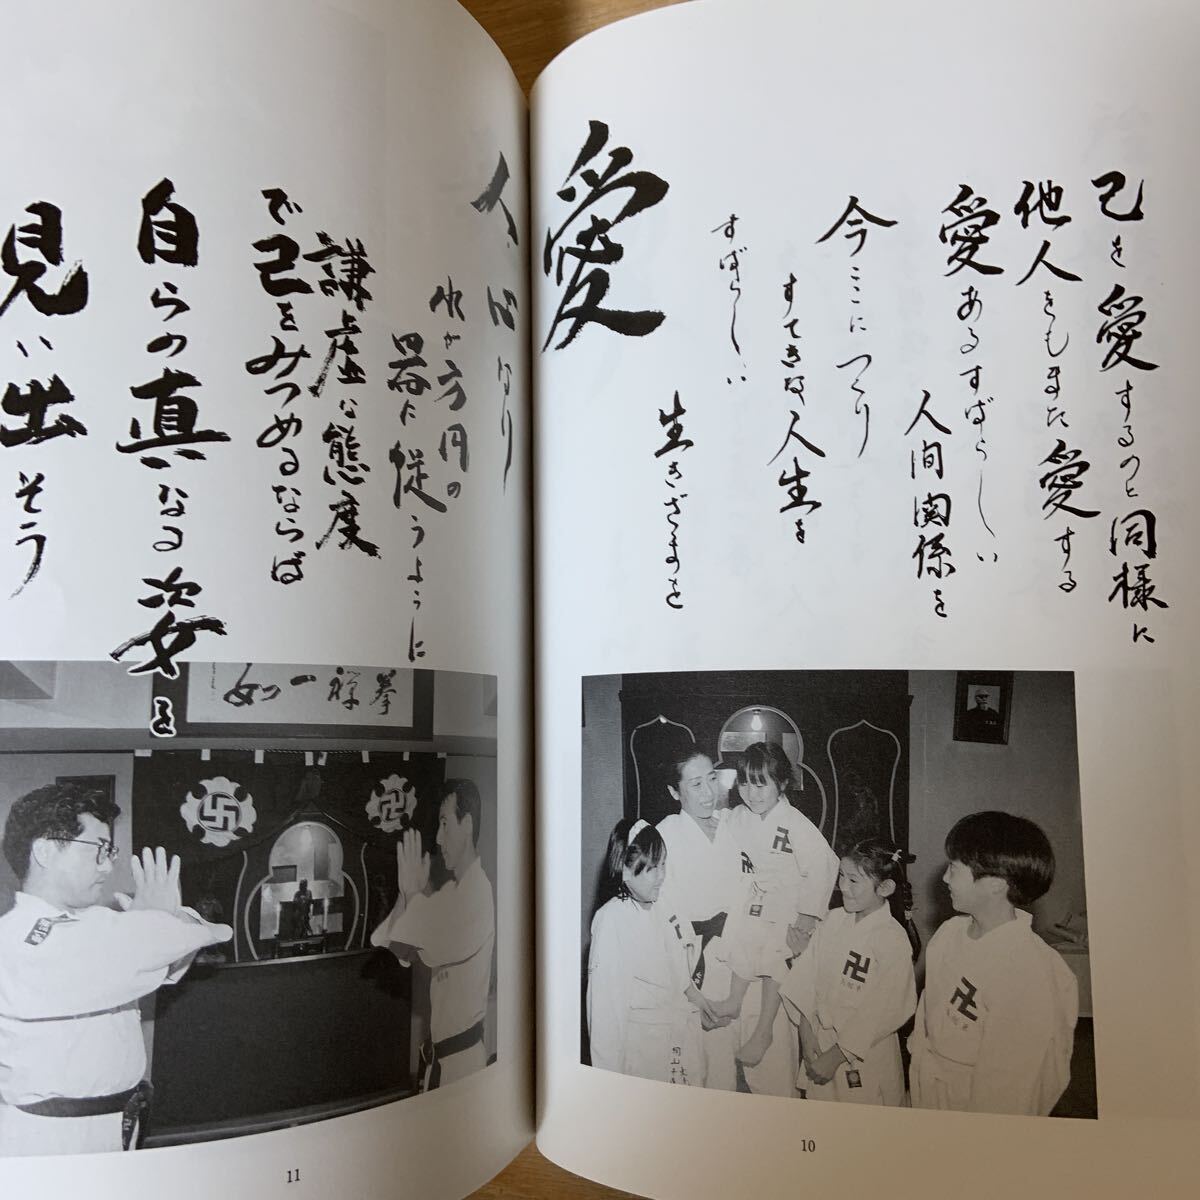 己を愛するのと同様に
他人をもまた愛する
愛あるすばらしい
人間関係を
今ここにつくり
すてきな人生を
すばらしい
生きざまを
愛
10
人心なり
水が方円の
器に従うように
謙虚な態度
で己をみつめるならば
自らの真なる姿を
見い出そう
拳禅一如
11